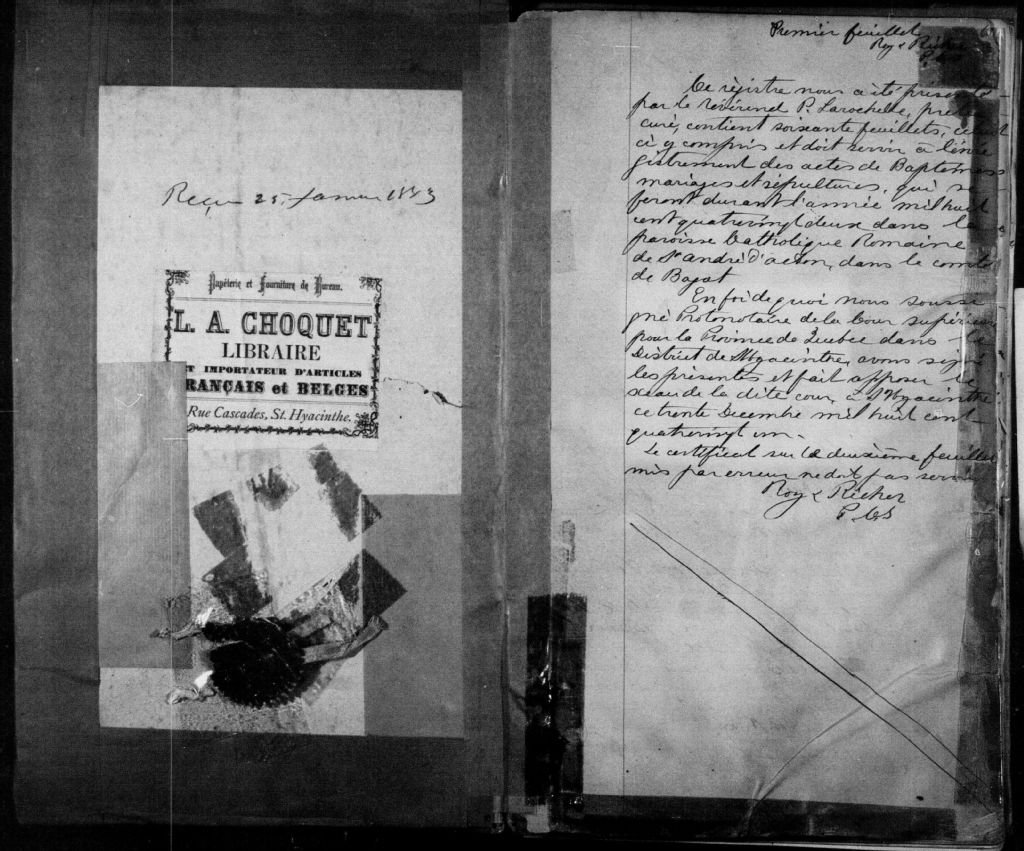 Reçu 25 Janvier 1883
Papéterie et Fourniture de Bureau.
L. A. CHOQUET
LIBRAIRE
ET IMPORTATEUR D'ARTICLES
FRANÇAIS et BELGES
Rue Cascades, St. Hyacinthe.
Premier feuillet
Roy & Richer
P. C. S
Ce régistre nous a été présenté
par le révérend P. Larochelle, prêtre
curé, contient soixante feuillets, celui
ci y compris et doit servir à l'enré
gistrement des actes de Baptemes
mariages et sépultures, qui se
feront durant l'année mil huit
cent quatrevingt deux dans la
paroisse Catholique Romaine
de St André d'acton, dans le comté
de Bagot
En foi de quoi nous soussi
gné Protonotaire de la Cour supérieure
pour la Province de Quebec dans le
District de St Hyacinthe, avons signé
les présentes et fait apposer le
sceau de la dite cour, à St Hyacinthe
ce trente Decembre mil huit cent
quatrevingt un.
Le certificat sur le deuxième feuillet
mis par erreur ne doit pas servir
Roy & Richer
P. C. S